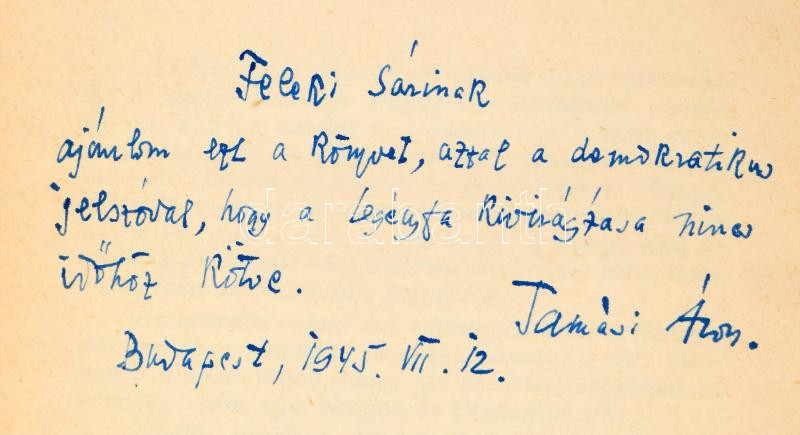 Feleki Sárinak
ajánlom ezt a könyvet, azzal a demokratikus
jelszóval, hogy a legényfa kivirágzása nincs
időhöz kötve.
Tamási Áron.
Budapest, 1945. VII. 12.
darabanth